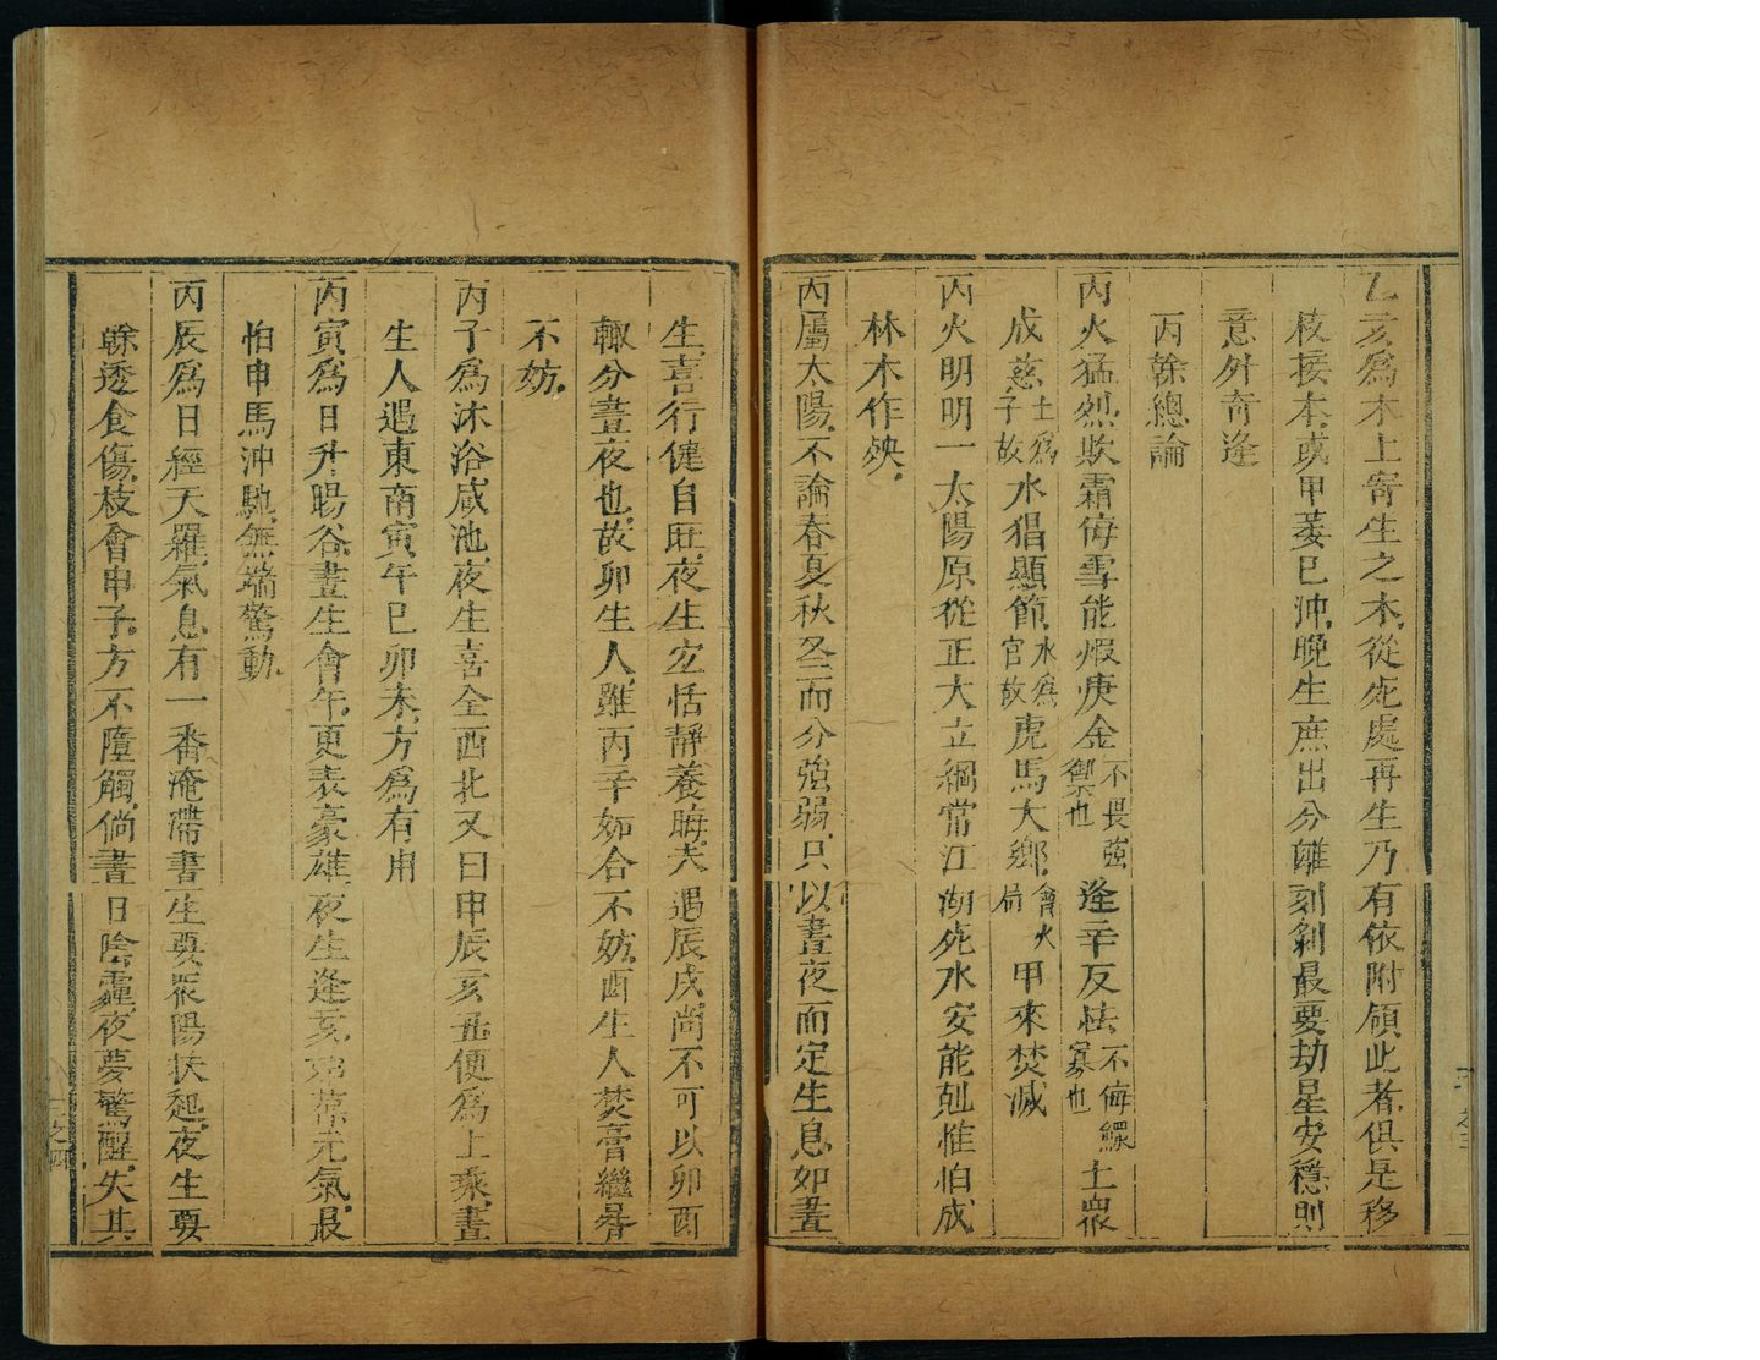 乙亥爲木上寄生之木從死處再生乃有依附領此者俱是移
枝接本或甲菱巳沖晚生庶出分離刻剝最要劫星安穩則
意外奇逢
丙榦總論
丙火猛烈欺霜侮雪能煆庚金不畏強禦也逢辛反怯不侮鰥寡也土衆
成慈土爲子故水猖顯節水爲官故虎馬犬鄉會火局甲來焚滅
丙火明明一太陽原從正大立綱常江湖死水安能剋惟怕成
林木作殃
丙屬太陽不論春夏秋冬而分強弱只以晝夜而定生息如晝
生喜行健自旺夜生宜恬靜養晦夫遇辰戌尚不可以卯酉
輒分晝夜也故卯生人雖丙辛姤合不妨酉生人焚膏繼晷
不妨
丙子爲沐浴咸池夜生喜全西北又曰申辰亥丑便爲上乘晝
生人遇東南寅午巳卯未方爲有用
丙寅爲日升暘谷晝生會午更表豪雄夜生逢亥元氣最
怕申馬沖馳無端驚動
丙辰爲日經天羅氣息有一番淹滯書生要衆陽扶起夜生要
榦透食傷枝會申子方不墮觸倘晝日陰霾夜夢驚醒失其